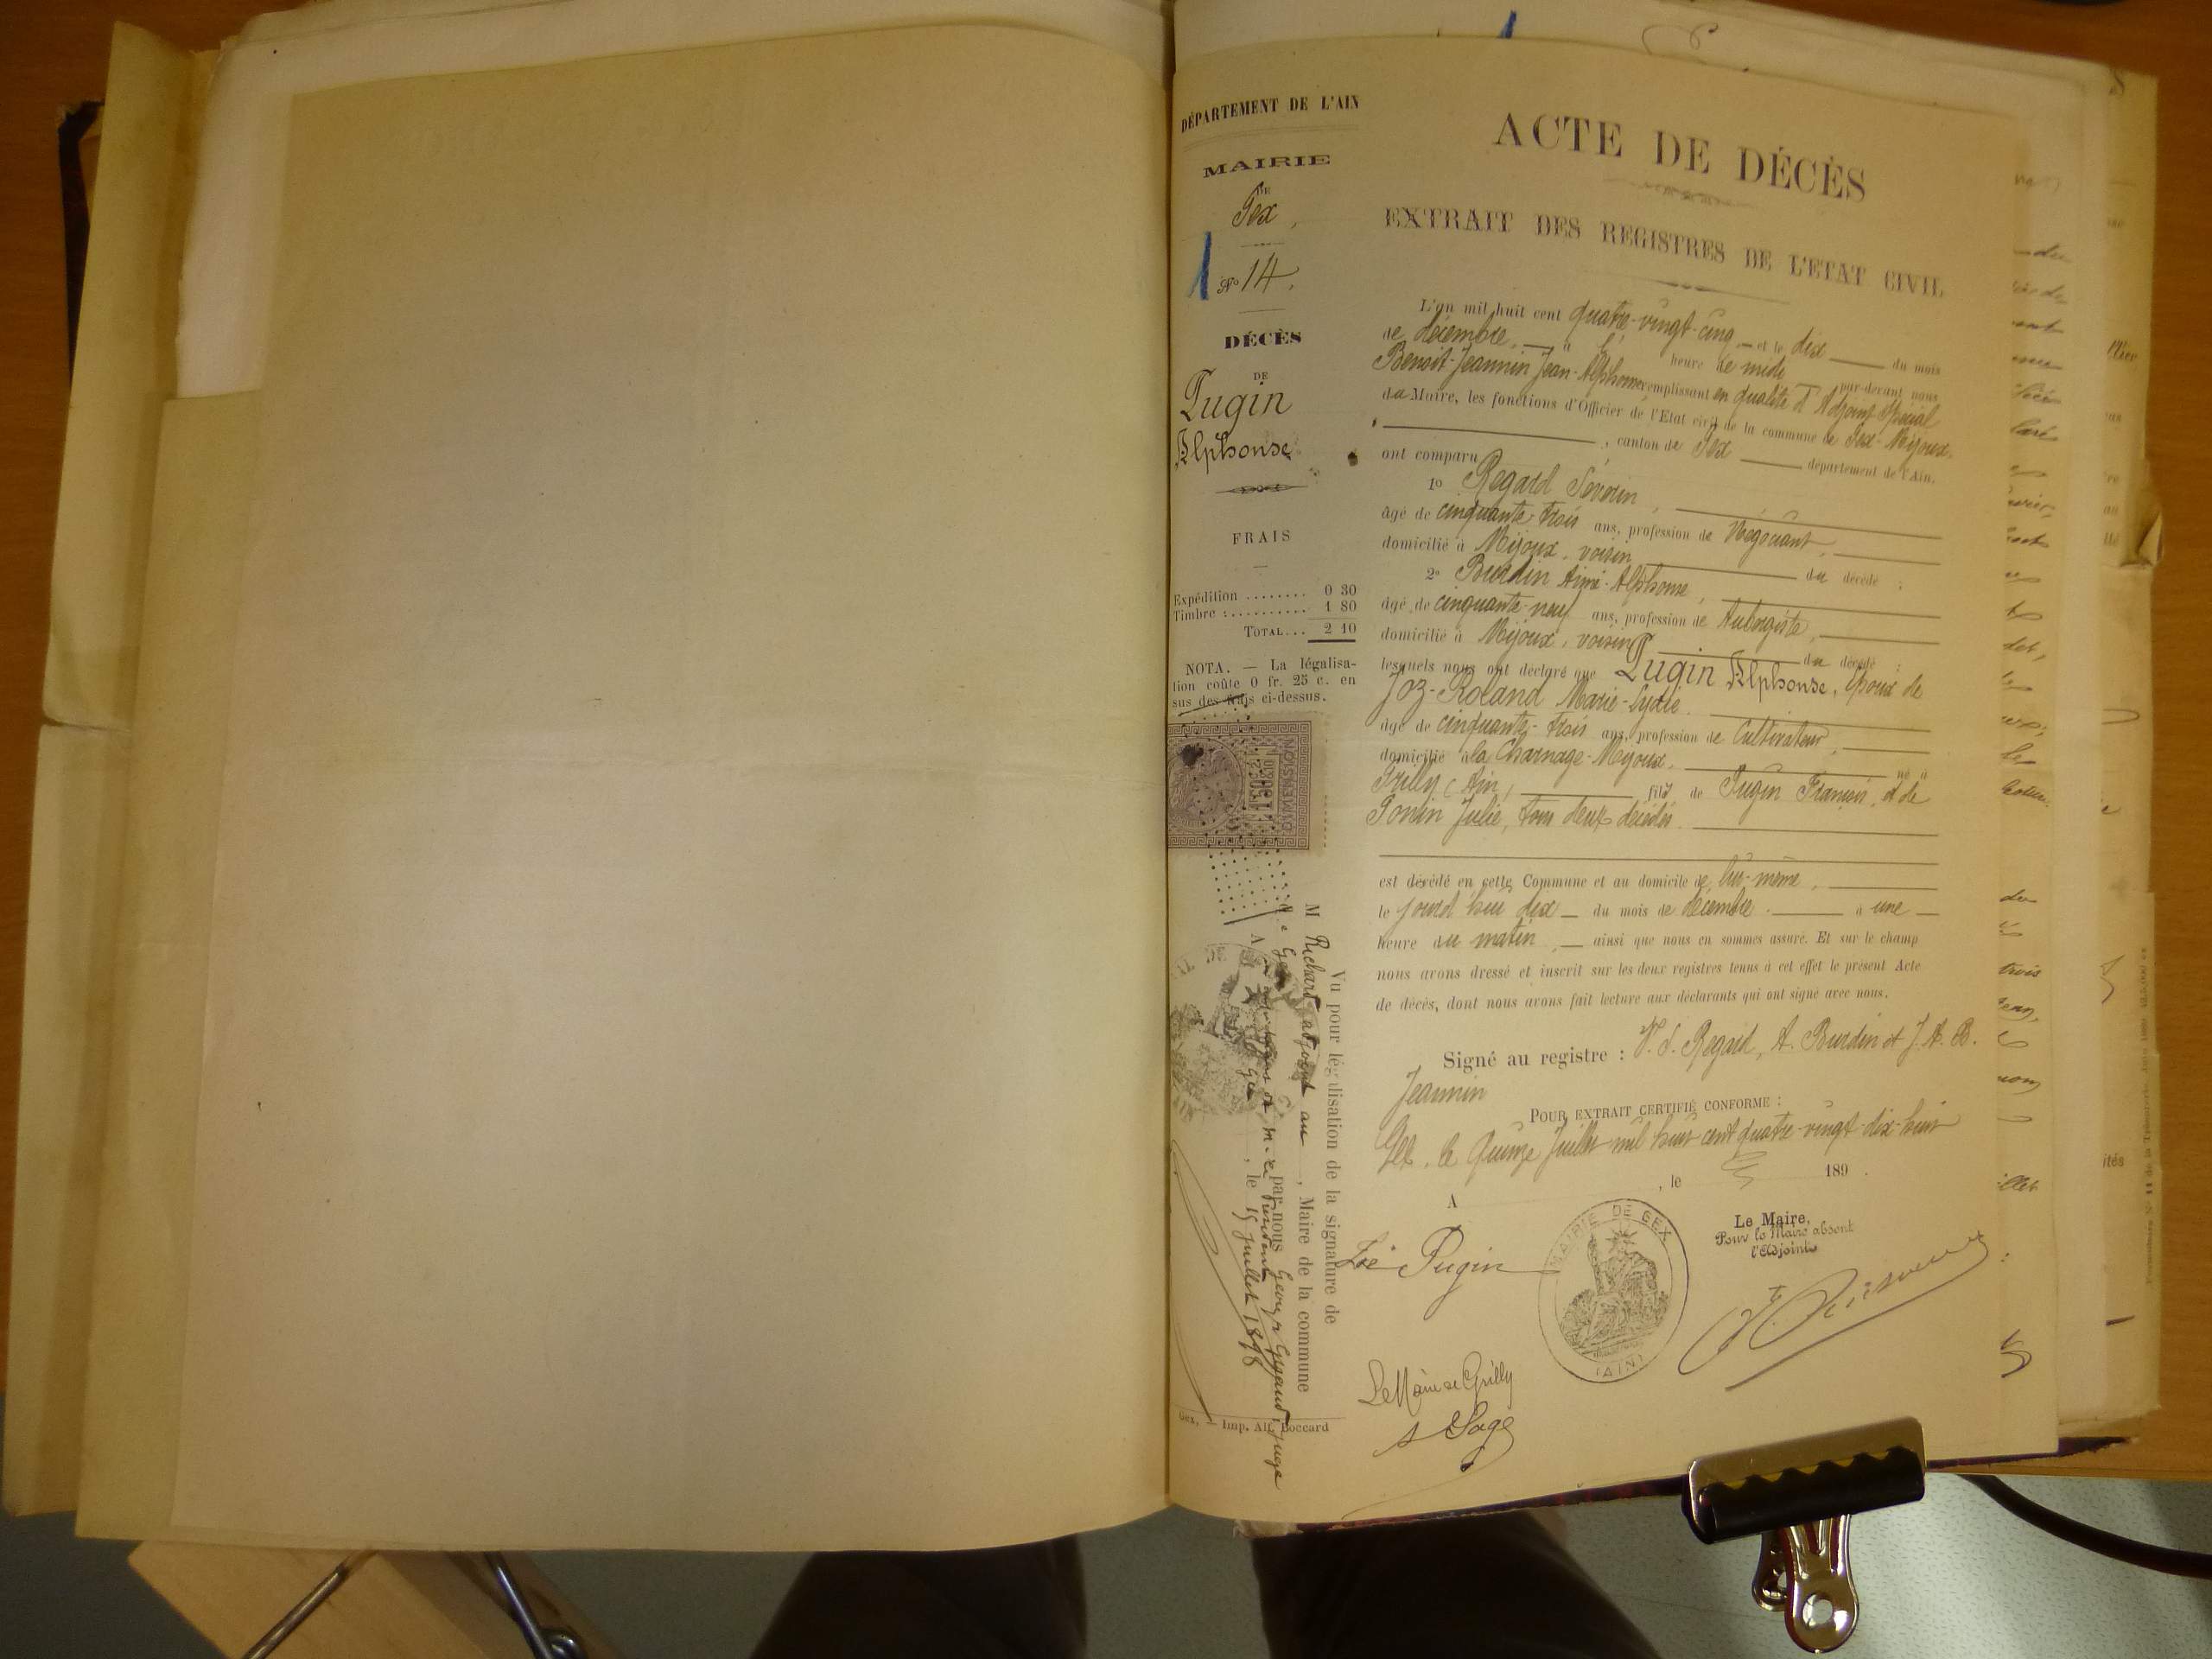 DÉPARTEMENT DE L'AIN
MAIRIE
DE
Gex,
No 14.
DÉCÈS
DE
Pugin
Alphonse
FRAIS
Expédition ........ 0 30
Timbre :.......... 1 80
TOTAL... 2 10
NOTA. — La légalisa-
tion coûte 0 fr. 25 c. en
sus des frais ci-dessus.
DIMENSION
Vu pour légalisation de la signature de
M Richard adjoint au , Maire de la commune
de Gex par nous George juge
A Gex, le 15 juillet 1898
Gex, — Imp. Alf. Boccard
ACTE DE DÉCÈS
EXTRAIT DES REGISTRES DE L'ÉTAT CIVIL
L'an mil huit cent quatre-vingt-cinq et le dix du mois
de décembre, à heure de midi par-devant nous
Benoit-Jeannin Jean-Alphonse remplissant en qualité d'Adjoint Spécial
du Maire, les fonctions d'Officier de l'Etat civil de la commune de Gex-Mijoux
, canton de Gex département de l'Ain,
ont comparu
1º Regard Séverin,
âgé de cinquante-trois ans, profession de Négociant,
domicilié à Mijoux, voisin du décédé ;
2º Burdin Aimé-Alphonse,
âgé de cinquante-neuf ans, profession de Aubergiste,
domicilié à Mijoux, voisin du décédé ;
lesquels nous ont déclaré que Pugin Alphonse, époux de
Joz-Roland Marie-Lydie
âgé de cinquante-trois ans, profession de Cultivateur,
domicilié à la Charnage-Mijoux, né à
Grilly (Ain) fils de Pugin François, et de
Ponin Julie, tous deux décédés.
est décédé en cette Commune et au domicile de lui-même,
le jourd'hui dix du mois de décembre à une
heure du matin, ainsi que nous en sommes assuré. Et sur le champ
nous avons dressé et inscrit sur les deux registres tenus à cet effet le présent Acte
de décès, dont nous avons fait lecture aux déclarants qui ont signé avec nous.
Signé au registre : V. S. Regard, A. Burdin et J. A. B.
Jeannin
POUR EXTRAIT CERTIFIÉ CONFORME :
Gex, le Quinze Juillet mil huit cent quatre-vingt-dix-huit
A , le 189 .
Le Maire,
Pour le Maire absent
l'Adjoint
Pugin
MAIRIE DE GEX
(AIN)
Le Maire de Grilly